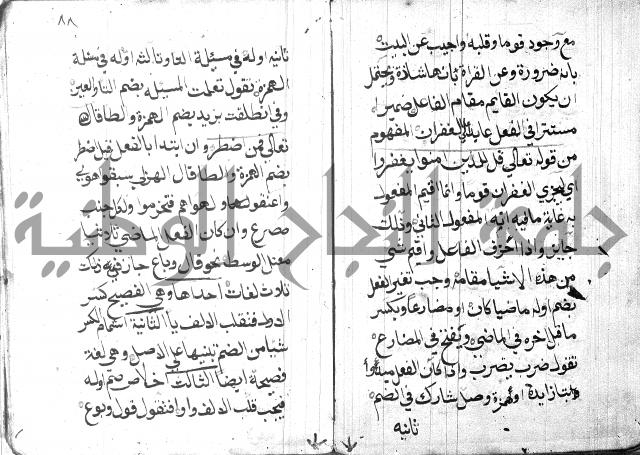 مع وجود قوما وقلبه واجيب عن البيت
بانه ضرورة وعن القراة بانها شاذة ويحتمل
ان يكون القايم مقام الفاعل ضميرا
مستترا في الفعل عايد الى الغفران المفهوم
من قوله تعالى قل للذين امنوا يغفروا
اي ليجزي الغفران قوما وانما اقيم المفعول
به غاية ما فيه انه المفعول الثاني وذلك
جايز واذا حذف الفاعل واقيم شي
من هذه الاشيا مقامه وجب تغير الفعل
بضم اوله ماضيا كان او مضارعا وبكسر
ما قبل اخره في الماضي وبفتح في المضارع
تقول ضرب يضرب واذا كان الفعل مبتدوا
بتا زايدة او همزة وصل شارك في الضم
ثانيه
٨٨
ثانيه اوله في مسيلة التا وثالثه اوله في مسيلة
الهمزة تقول تعلمت المسيلة بضم التا والعين
وفي انطلقت بزيد بضم الهمزة والطا قال الله
تعالى فمن اضطر وان ابتدا بالفعل قيل اضطر
بضم الهمزة والطا قال الهذلي سبقوا هوي
واعنقوا لهواهم فتخرموا ولكل جنب
مصرع وان كان الفعل الماضي ثلاثيا
معتل الوسط نحو قال وباع جاز فيه ذلك
ثلاث لغات احداها وهي الفصيح كسر
الاول فتقلب الالف يا الثانية اشمام الكسر
شيا من الضم تنبيها على الاصل وهي لغة
فصيحة ايضا الثالث اخلاص ضم اوله
فيجب قلب الالف واوا فتقول قول وبوع
جامعة النجاح الوطنية